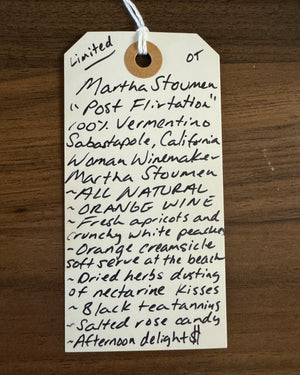 Limited
OT
Martha Stoumen
"Post Flirtation"
100% Vermentino
Sabastapole, California
Woman Winemaker
Martha Stoumen
~ALL NATURAL
~ORANGE WINE
~Fresh apricots and
crunchy white peaches
~Orange creamsicle
soft serve at the beach
~Dried herbs dusting
of nectarine kisses
~Black tea tannins
~Salted rose candy
~Afternoon delight$